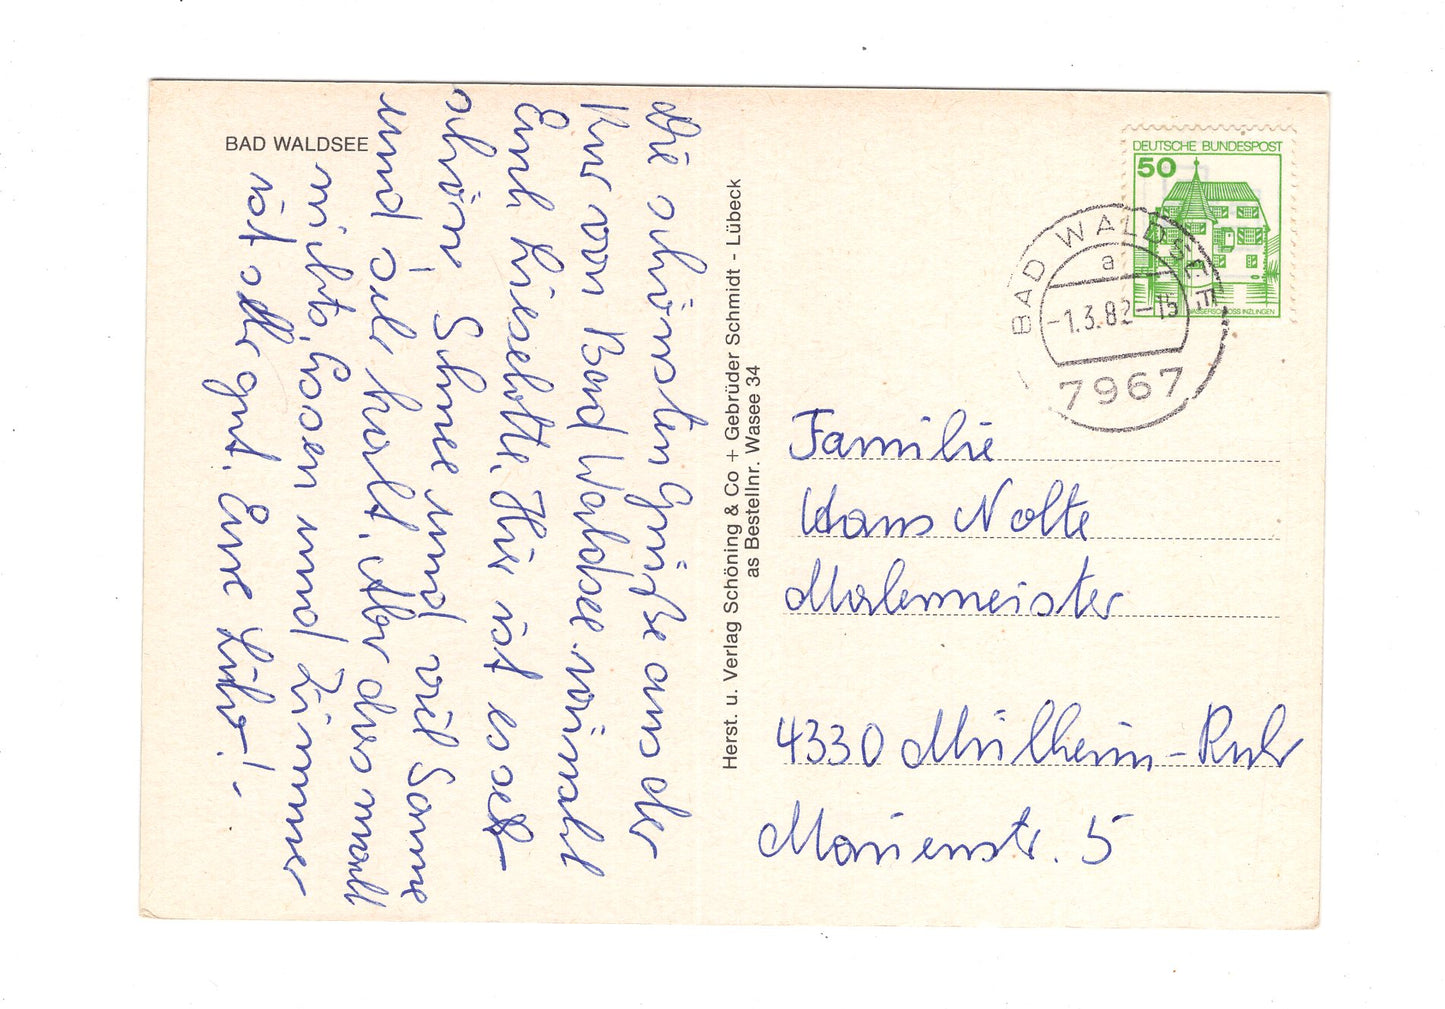 BAD WALDSEE
Die schönsten Grüße aus der
Kur von Bad Waldsee wünscht
Euch Lieselotte. Hier ist es sehr
schön Schnee und viel Sonne
und sehr kalt. Aber das macht
nichts, Essen und Zimmer
ist alles gut. Eure Lilo! -
Herst. u. Verlag Schöning & Co + Gebrüder Schmidt - Lübeck
as Bestellnr. Wasee 34
DEUTSCHE BUNDESPOST
50
WASSERSCHLOSS INZLINGEN
BAD WALDSEE
a
-1.3.82-15
7967
Familie
Hans Nolte
Malermeister
4330 Mülheim-Ruhr
Marienstr. 5